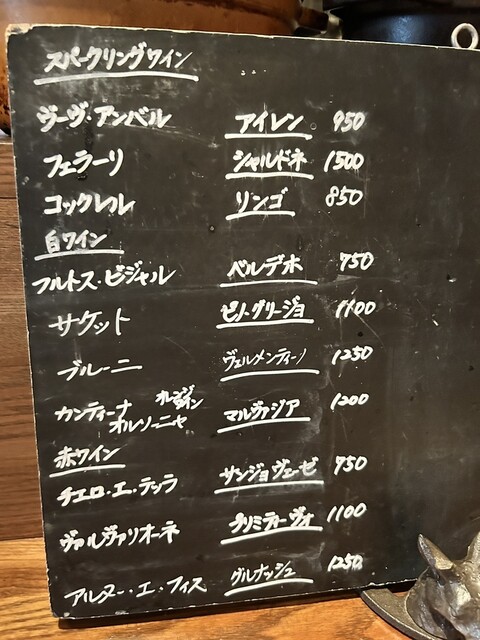 スパークリングワイン
ヴーヴ・アンバル アイレン 950
フェラーリ シャルドネ 1500
コックレル リンゴ 850
白ワイン
フルトス・ビジャル ベルデホ 750
サケット ピノ・グリージョ 1100
ブルーニ ヴェルメンティーノ 1250
カンティーナ オルソーニャ オレンジワイン マルヴァジア 1200
赤ワイン
チエロ・エ・テッラ サンジョヴェーゼ 950
ヴァルヴァリオーネ プリミティーヴォ 1100
アルヌー・エ・フィス グルナッシュ 1250